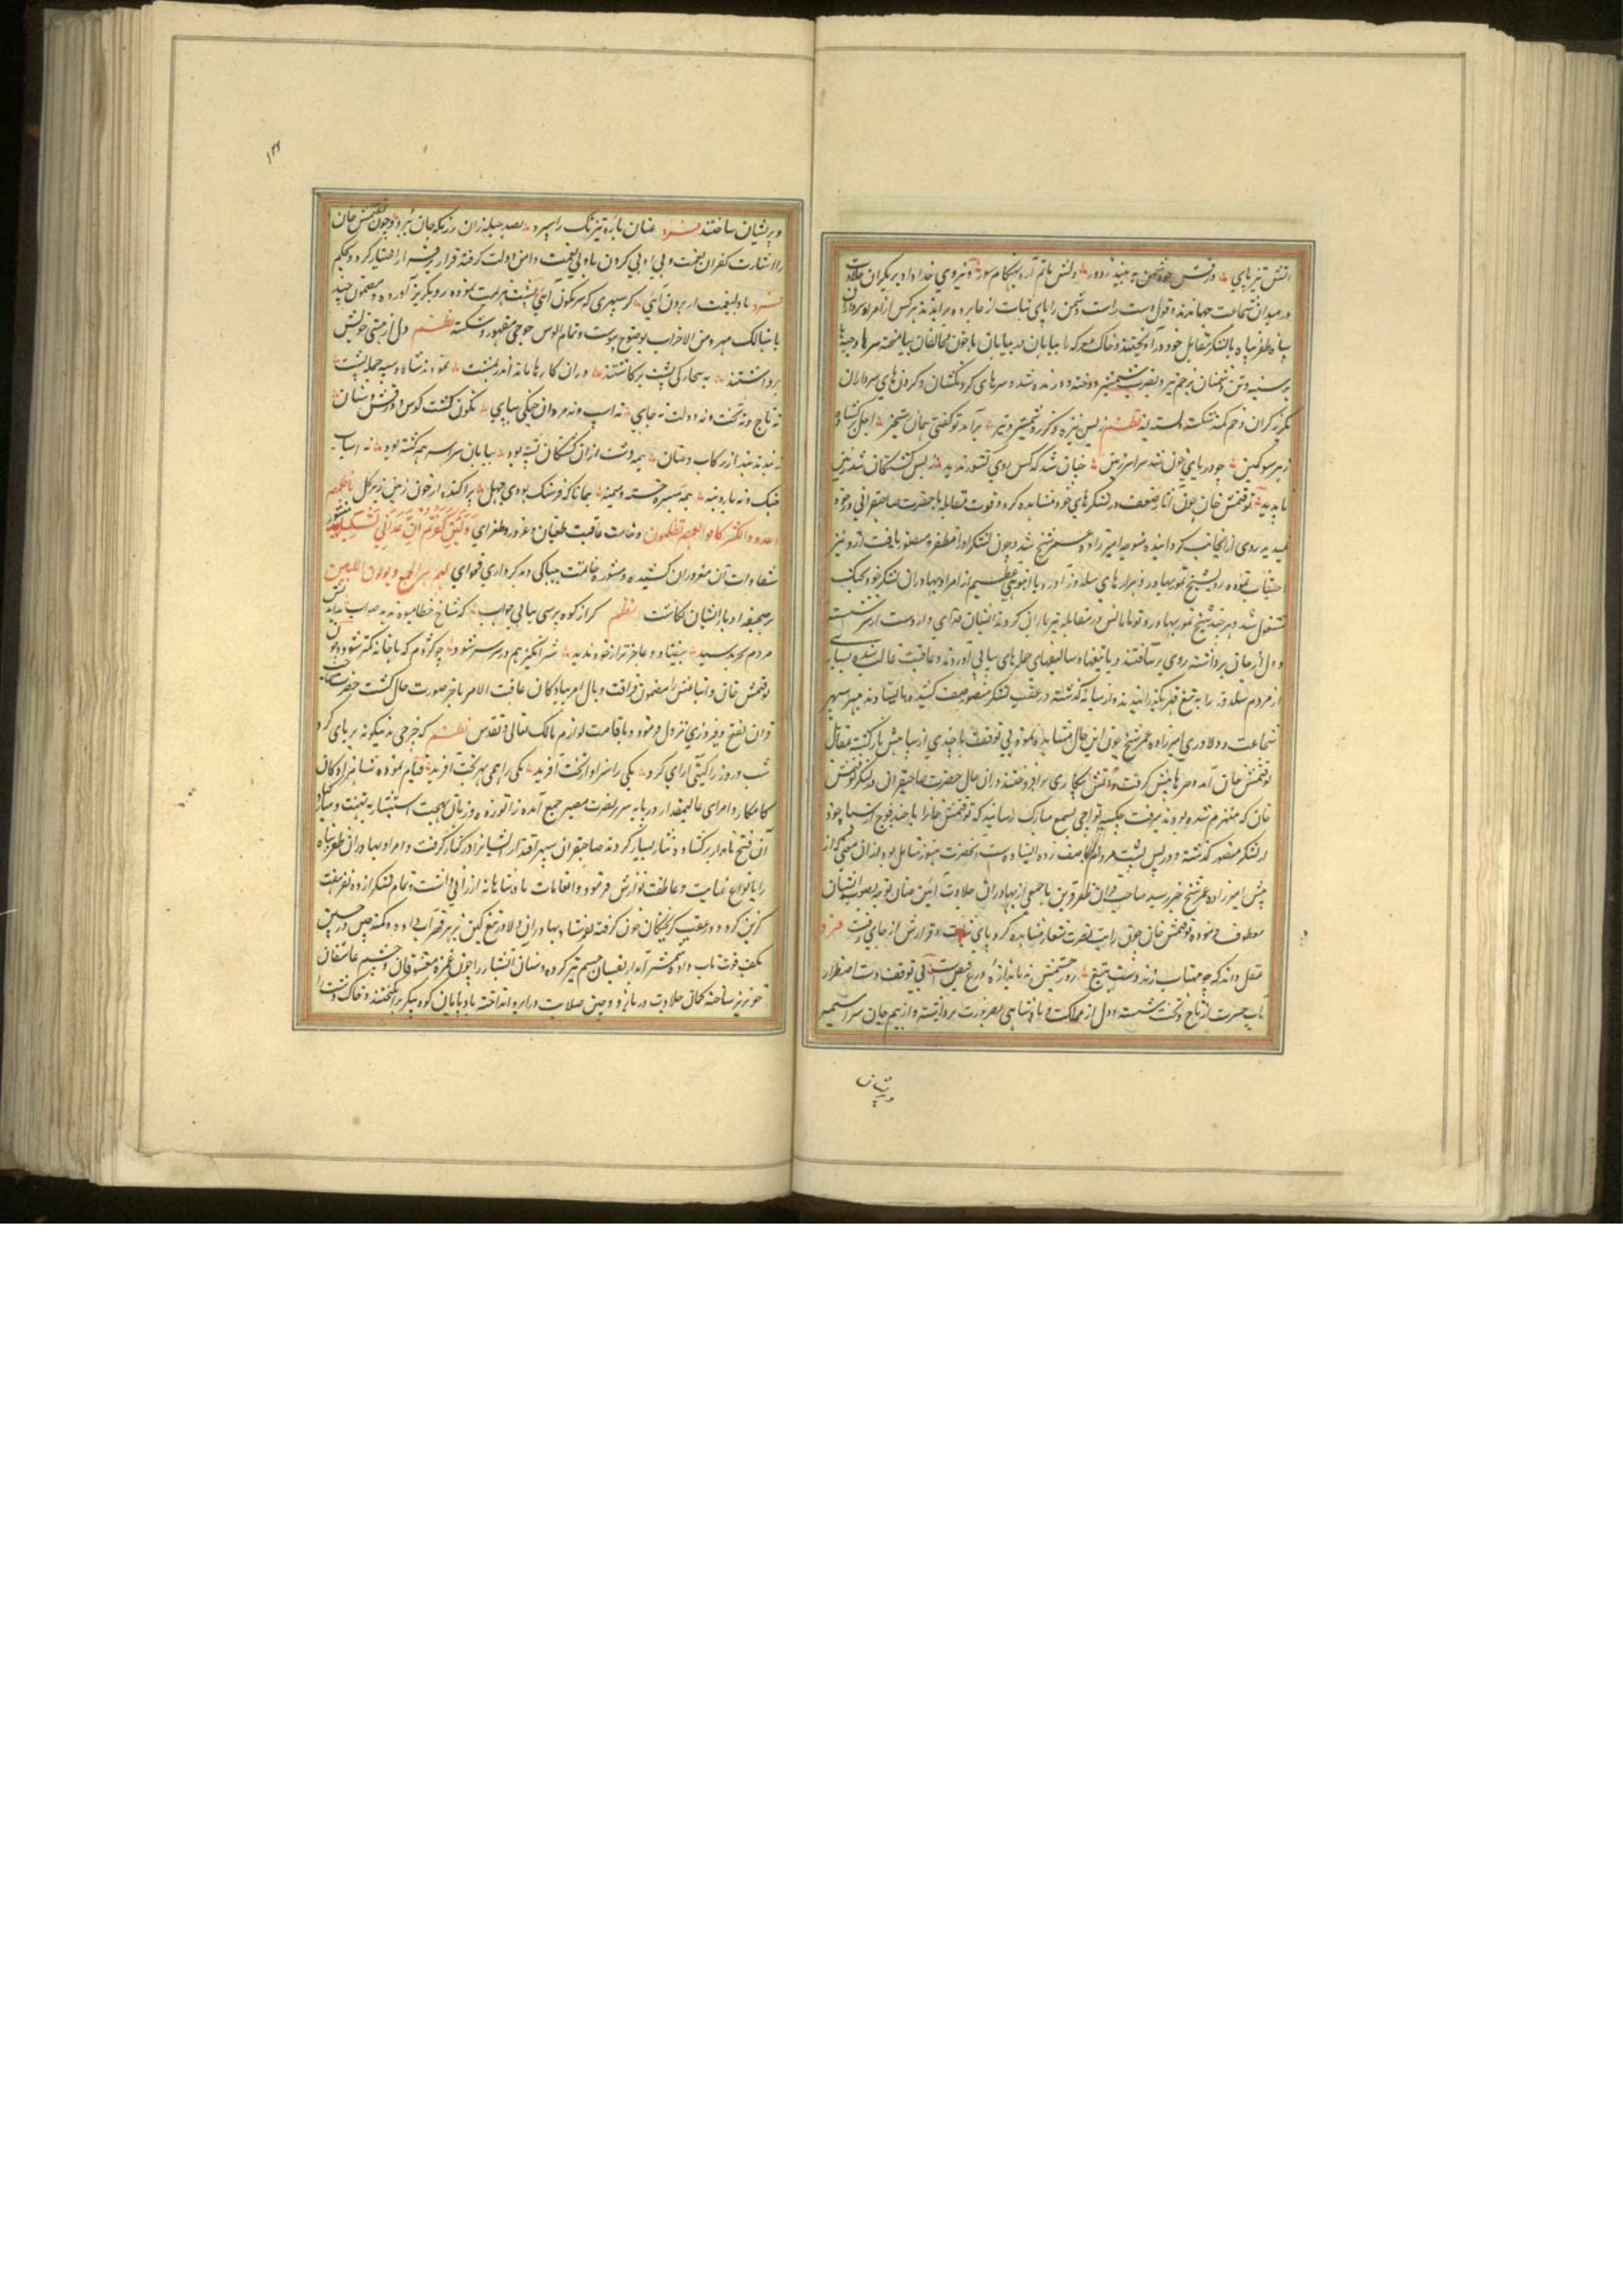 آتش تیز پای درفش چو دشمن به بیند ز دور دلش ماتم آرد بهنگام سور و نیروی خداداد بر یکران جلادت
در میدان شجاعت جهاندند و قول و دست راست دشمن را پای ثبات از جا برده براندند هر کس از امرا و سرداران
سپاه ظفر پناه با لشکر مقابل خود در آویختند و خاک معرکه را بیابان در بیابان با خون مخالفان بیامیخته سرها و جیبها
بر سینه و تن دشمنان بزخم تیر و بضرب شمشیر دوخته و دریده شد و سرهای گردنکشان و گردن‌های سرداران
بگرز گران و خم کمند شکسته و بسته نظم ز بس نیزه و گرز و شمشیر و تیر برآمد تو گفتی همان رستخیز اجل
ز هر سو کمین چو دریای خون شد سراسر زمین چنان شد که کس روی کشور ندید ز بس کشتگان شد زمین
ناپدید توقتمش خان چون آثار ضعف در لشکرهای خود مشاهده کرد و قوت مقابله با حضرت صاحبقرانی در خود
ندید روی از آنجانب گردانیده متوجه امیرزاده عمر شیخ شد و چون لشکر او را مظفر و منصور یافت از و نیز
اجتناب نموده رو بشیخ تمور بهادر و هزارهای سلدوز آورد و با انبوهی عظیم از امرا و بهادران لشکر خود بجنگ
مشغول شد و هر چند شیخ تمور بهادر و تومانانش در مقابله تیرباران کردند ایشان فدای وار دست از سر شسته
و دل از جان برداشته روی برنتافتند و با تیغهاء سالیغهای حمله‌های پیاپی آوردند و عاقبت غالب شده بسیاری
از مردم سلدوز را به تیغ قهر بگذرانیدند و از میانه گذشته در عقب لشکر منصور صف کشیده بایستادند مهر سپهر
شجاعت و دلاوری امیرزاده عمر شیخ چون این حال مشاهده نمود بی توقف با چندی از سپاهش بازگشته مقابل
توقتمش خان آمد و سرها پیش گرفت و آتش پیکاری برافروختند در آن حال حضرت صاحبقرانی در لشکر توقتمش
خان که منهزم شده بودند میرفت چکسه تواچی بسمع مبارک رسانید که توقتمش خان با چند فوج از سپاه خود
از لشکر منصور گذشته و در پس پشت مردم ما صف زده ایستاده است آنحضرت هنوز متأمل بود در آن معنی که از
پیش امیرزاده عمر شیخ خبر رسید صاحبقران ظفر قرین با جمعی از بهادران جلادت آئین عنان توجه بصوب ایشان
معطوف فرموده توقتمش خان چون رایت نصرت شعار مشاهده کرد پای ثبات و قرارش از جای رفت فرد
عقل داند که چو مهتاب زند دست بتیغ روز رخشش نه باندازه درع قصبست بی توقف دست اضطرار
بآب حسرت از تاج و تخت شسته و دل از مملکت و پادشاهی بضرورت برداشته و از بیم جان سراسیمه
و پریشان
۱۳۲
و پریشان ساختند فرد عنان باره تیزتگ را سپرد بصد حیله زان رزمگه جان ببرد و چون توقتمش خان
را اشارت کفران نعمت و بی ادبی کردن با ولی نعمت دامن دولت گرفته قرار بر فرار اختیار کرد و بحکم
فرد با ولینعمت ار برون آئی گر سپهری که سرنگون آئی پشت هزیمت نموده رو بگریز آورده و مضمون جند
ما هنالک مهزوم من الاحزاب بوضوح پیوست و تمام الوس جوجی مقهور و شکسته نظم دل از هستی خویش
برداشتند به بیچارگی پشت برگاشتند در آن کارها مانده اندر شگفت نمود نه شاه و سپه جمله پشت
نه تاج و نه تخت و نه دولت نه جای نه اسپ و نه مردان جنگی بپای نگون گشت کوس و درفش و سنان
نبد هیچ پیدا از رکاب و عنان همه دشت از آن کشتگان تیره بود بیابان سراسر همه کشته بود نه اسباب
خنگ و نه بار و بنه همه میسره خسته و میمنه همانا که فرسنگ بودی چهل پراکنده از خون زمین زیر گل ما ظلمهم
الله ولکن کانوا انفسهم یظلمون وخامت عاقبت طغیان و غرور و طغرای و لئن کفرتم ان عذابی لشدید منشور
شقاوت آن مغروران کشیده و منشور خاتمت بیباکی و بدکرداری فحوای سیهزم الجمع و یولون الدبر
بر صحیفه ادبار ایشان نگاشت نظم گر از کوه پرسی بیابی جواب که شاخ خطا میوه ندهد صواب
مردم بد رسید نیفتاد و عاجزتر از خود ندید شر انگیز هم در سر شر شود چو کژدم که با خانه کمتر شود و چون
توقتمش خان و اتباعش را مضمون فذاقت وبال امرها و کان عاقبت الامر باخر صورت حال گشت حضرت صاحب
قران بفتح و فیروزی نزول فرمود و باقامت لوازم مالک تعالی و تقدس نظم که چرخی بدینگونه بر پای کرد
شب و روز را گیتی آرای کرد یکی را سزاوار تخت آفرید یکی را همی بهر تخت آفرید قیام نموده شاهزادگان
کامکار و امرای عالیمقدار در پایه سریر نصرت مصیر جمع آمده زانو زده و زبان بهجت استبشار به تهنیت و مبارکباد
آن فتح نامدار برگشاده نثار بسیار کردند صاحبقران سپهر اقتدار ایشانرا در کنار گرفت و امرا و بهادران ظفر پناه
را بانواع عنایت و عاطفت نوازش فرمود و انعامات پادشاهانه ارزانی داشت و تمام لشکر از ده نفر هفت
گزین کرد و در عقب گریختگان خون گرفته بفرستاد بهادران دلاور تیغ کین بزهر قهر آب داده و کمند چین در چین
بکف قوت تاب داده شمشیر آبدار بفسان خسم تیز کرده و سنان آتشبار را چون غمزه معشوقان و چشم عاشقان
خونریز ساخته کمان جلادت در بازو و چین صلابت در ابرو انداخته بادپایان کوه پیکر برانگیختند و خاک دشت را